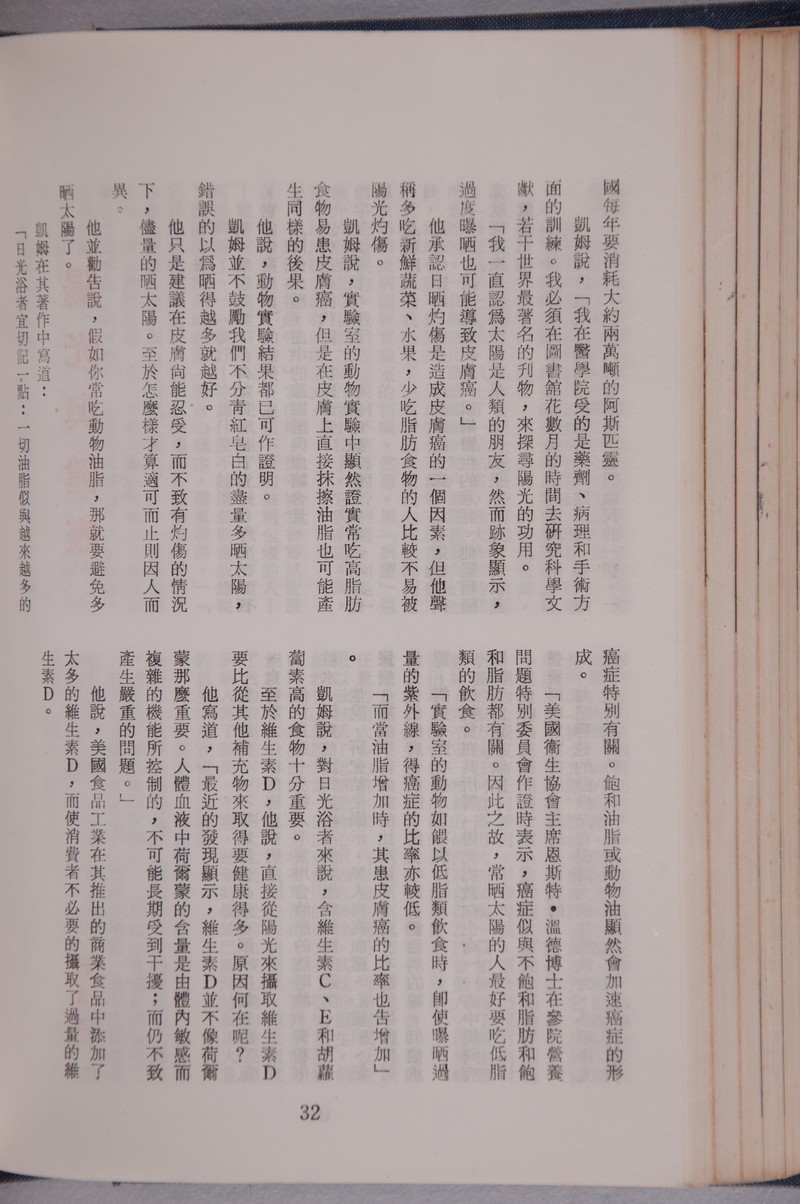 國每年要消耗大約兩萬噸的阿斯匹靈。
凱姆說，「我在醫學院受的是藥劑、病理和手術方
面的訓練。我必須在圖書館花數月的時間去研究科學文
獻，若干世界最著名的刋物，來探尋陽光的功用。
「我一直認爲太陽是人類的朋友，然而跡象顯示，
過度曝晒也可能導致皮膚癌。」
他承認日晒灼傷是造成皮膚癌的一個因素，但他聲
稱多吃新鮮蔬菜、水果，少吃脂肪食物的人比較不易被
陽光灼傷。
凱姆說，實驗室的動物實驗中顯然證實常吃高脂肪
食物易患皮膚癌，但是在皮膚上直接抹擦油脂也可能產
生同樣的後果。
他說，動物實驗結果都已可作證明。
凱姆並不鼓勵我們不分靑紅皂白的盡量多晒太陽，
錯誤的以爲晒得越多就越好。
他只是建議在皮膚尙能忍受，而不致有灼傷的情況
下，儘量的晒太陽。至於怎麼樣才算適可而止則因人而
異。
他並勸告說，假如你常吃動物油脂，那就要避免多
晒太陽了。
凱姆在其著作中寫道：
「日光浴者宜切記一點：一切油脂似與越來越多的
癌症特別有關。飽和油脂或動物油顯然會加速癌症的形
成。
「美國衞生協會主席恩斯特•溫德博士在參院營養
問題特別委員會作證時表示，癌症似與不飽和脂肪和飽
和脂肪都有關。因此之故，常晒太陽的人最好要吃低脂
類的飲食。
「實驗室的動物如餵以低脂類飲食時，卽使曝晒過
量的紫外線，得癌症的比率亦較低。
「而當油脂增加時，其患皮膚癌的比率也告增加」
。
凱姆說，對日光浴者來說，含維生素C、E和胡蘿
蔔素高的食物十分重要。
至於維生素D，他說，直接從陽光來攝取維生素D
要比從其他補充物來取得要健康得多。原因何在呢？
他寫道，「最近的發現顯示，維生素D並不像荷爾
蒙那麼重要。人體血液中荷爾蒙的含量是由體內敏感而
複雜的機能所控制的，不可能長期受到干擾；而仍不致
產生嚴重的問題。」
他說，美國食品工業在其推出的商業食品中添加了
太多的維生素D，而使消費者不必要的攝取了過量的維
生素D。
32